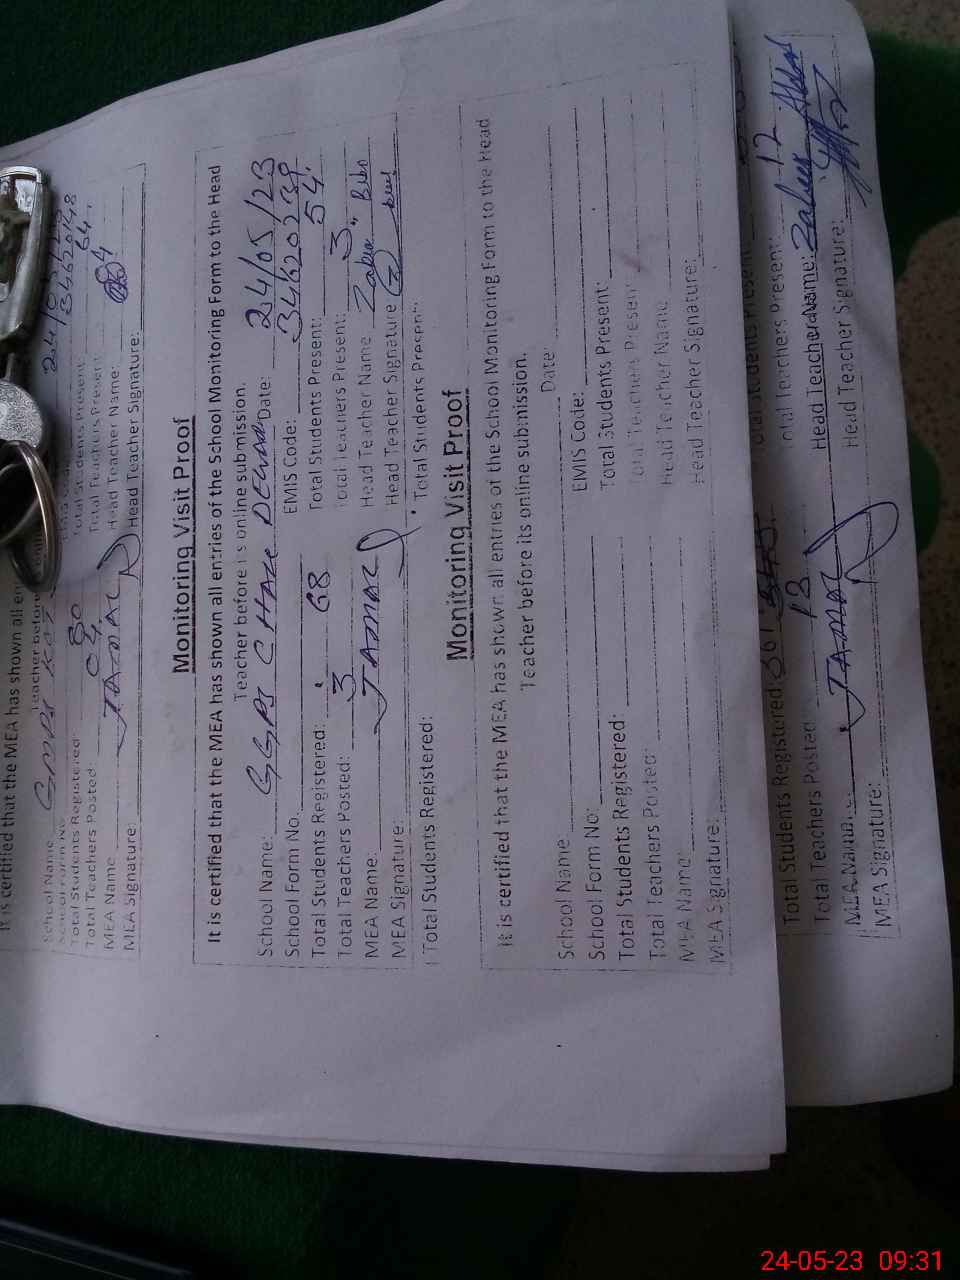 It is certified that the MEA has shown all en
Teacher before
School Name GMPS KOT
Total Students Registered: 80 Total Students Present: 64
Total Teachers Posted: 04 Total Teachers Present 4
MEA Name JAMAL Head Teacher Name:
MEA Signature: Head Teacher Signature:
34620148
Monitoring Visit Proof
It is certified that the MEA has shown all entries of the School Monitoring Form to the Head
Teacher before its online submission.
School Name: GGPS CHAK Date: 24/05/23
School Form No. EMIS Code: 34620239
Total Students Registered: 68 Total Students Present: 54
Total Teachers Posted: 3 Total Teachers Present: 3
MEA Name: JAMAL Head Teacher Name Zakia Bibi
MEA Signature: Head Teacher Signature
Total Students Registered: Total Students Present:
Monitoring Visit Proof
It is certified that the MEA has shown all entries of the School Monitoring Form to the Head
Teacher before its online submission.
School Name Date:
School Form No: EMIS Code:
Total Students Registered: Total Students Present:
Total Teachers Posted: Total Teachers Present
MEA Name: Head Teacher Name
MEA Signature: Head Teacher Signature:
Total Students Registered: 361 Total Students Present:
Total Teachers Posted 13 Total Teachers Present: 12
MEA Name JAMAL Head Teacher Name: Zaheer Abbas
MEA Signature: Head Teacher Signature:
24-05-23 09:31